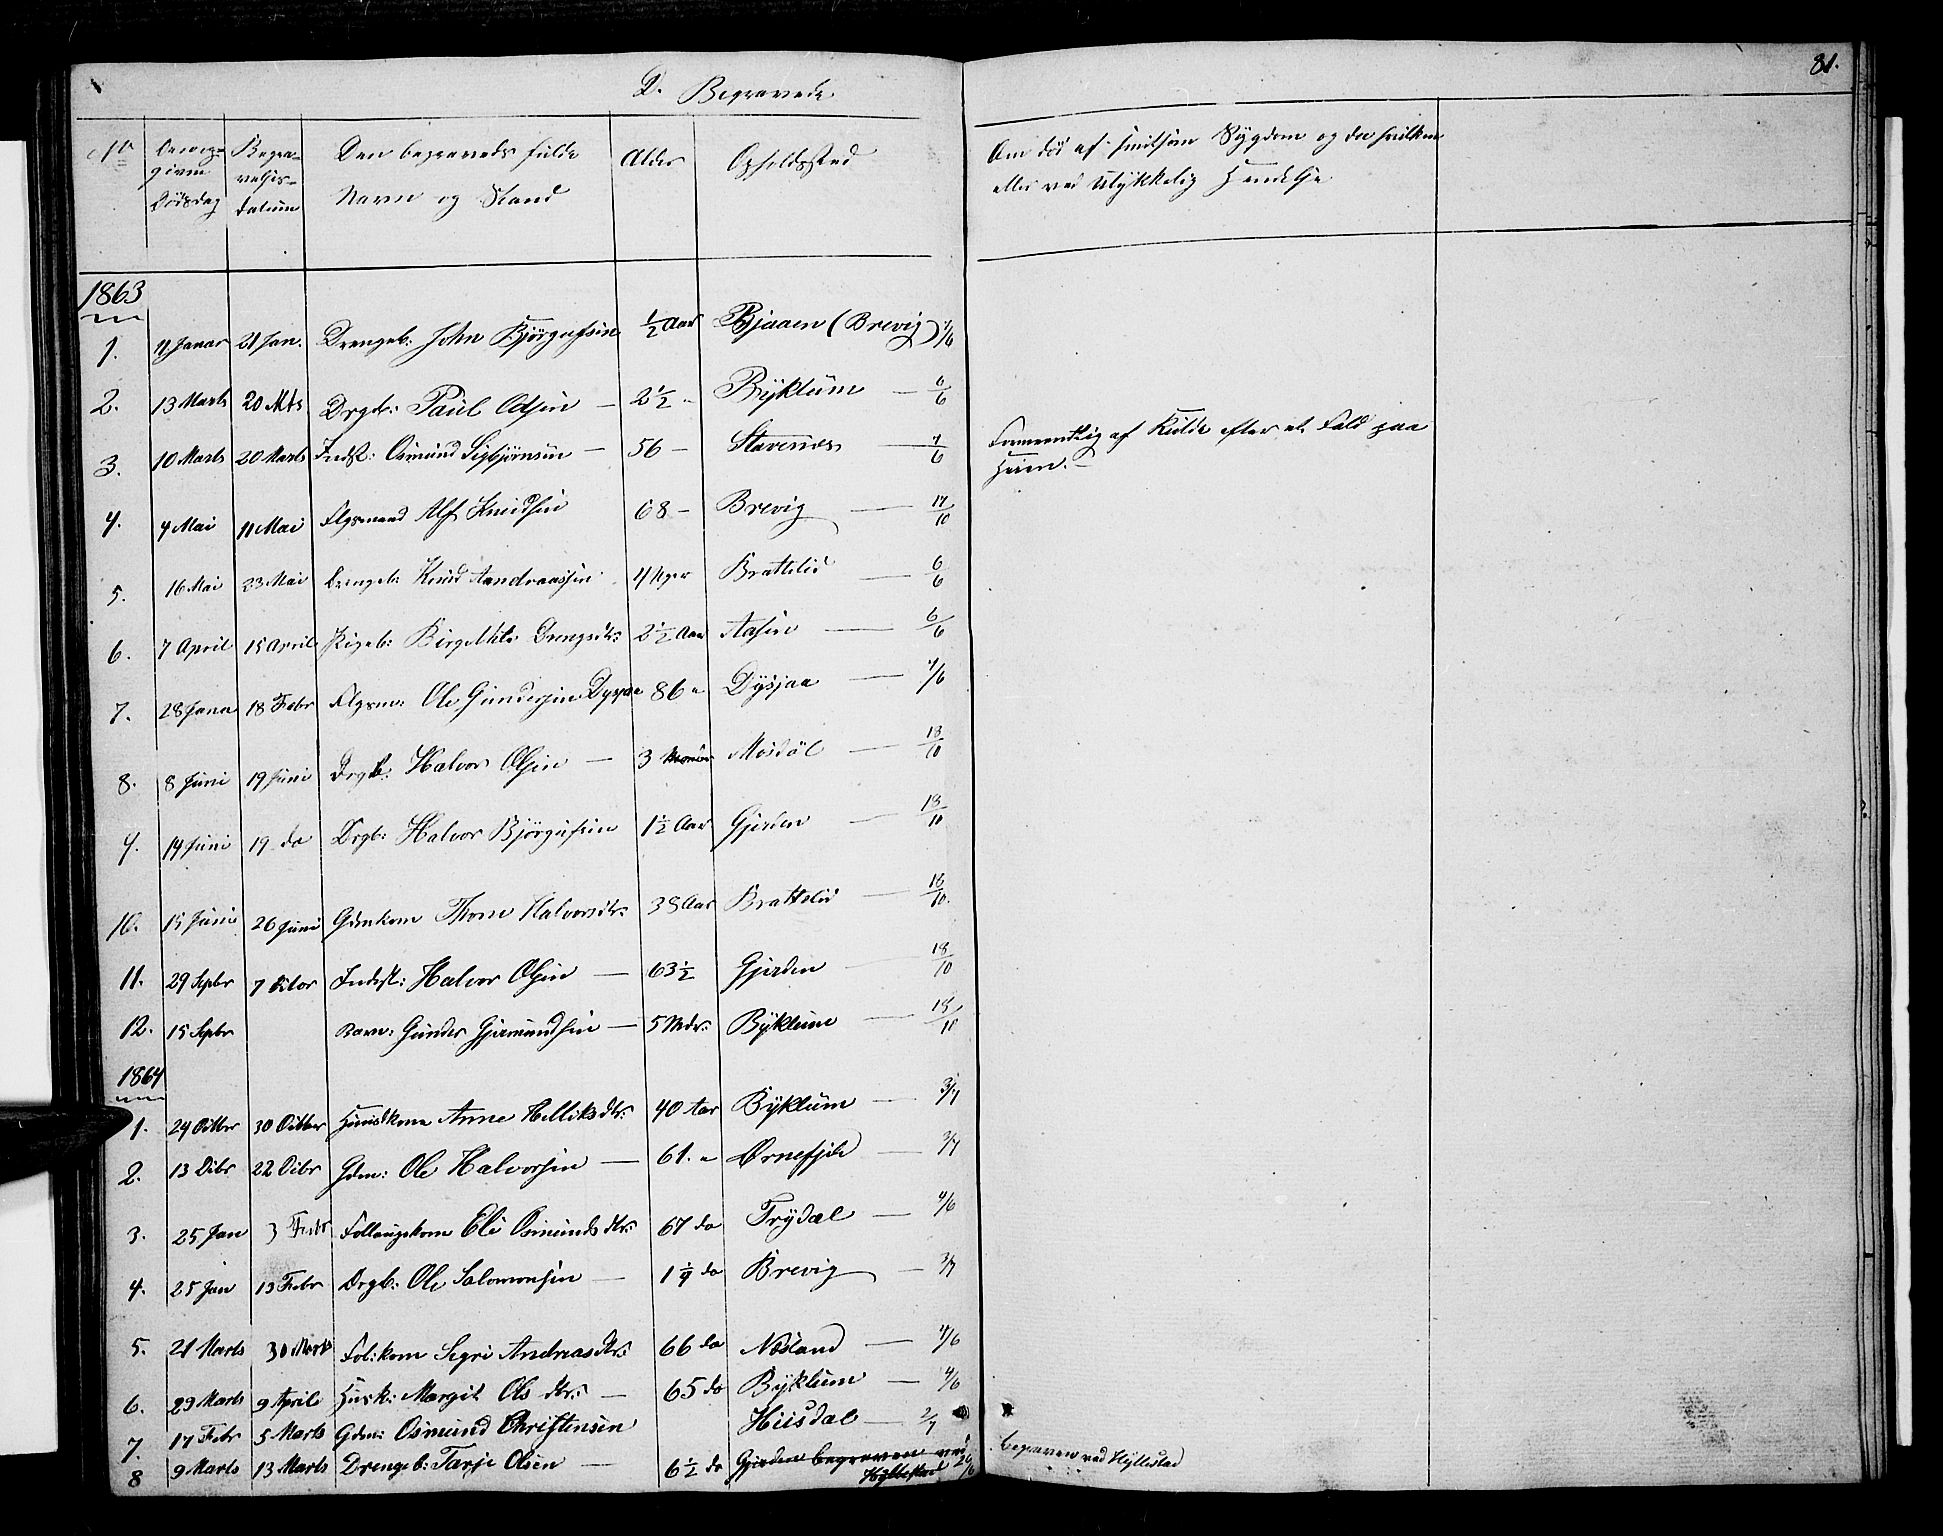 81.
D. Begravede
No Den begravedes fulde Alder Opholdssted
Dødsdag Begravelses-datum Navn og Stand
Om død af smitsom Sygdom og da hvilken
eller ved Ulykkelig Hendelse
1863
1. 11 Januar 21 Jan. Drengeb: John Bjørgufsen ½ Aar Bjaaen (Brevig)
2. 13 Marts 20 Mts Drgb: Paul Olsen — 2½ " Byklum — 6/6
3. 10 Marts 20 Marts Indst: Osmund Sigbjørnsen — 56 — Stavenæs
Formeentlig af Kulde efter et Fald paa
Heien. —
4. 4 Mai 11 Mai Flgsmand Alf Knudsen 68 — Brevig — 17/10
5. 16 Mai 23 Mai Drengeb: Knud Aandraassen 4 Uger Bratteli — 6/6
6. 7 April 15 April Pigeb: Birgitte Drengsdtr: 2½ Aar Aasen — 6/6
7. 28 Janua 18 Febr Flgsm: Ole Gundersen Dysjaa 86 " Dysjaa —
8. 8 Juni 19 Juni Drgb: Halvor Olsen — 3 Mosdøl — 18/10
9. 14 Juni 19 do Drgb: Halvor Bjørgufsen 1½ Aar Gjerden — 18/10
10. 15 Juni 26 Juni Gdmkone Thone Halvorsdtr: 38 Aar Bratteli — 18/10.
11. 29 Sepbr 7 Octor Indest: Halvor Olsen — 63½ Gjerden 18/10
12. 15 Sepbr Barn: Gunder Gjermundsen — 5 Mdr: Byklum —
1864
1. 24 Octber 30 Octber Huuskone Anne Helliksdtr: 40 Aar Byklum —
2. 13 Dcbr 22 Dcbr Gdm: Ole Halvorsen — 61. " Ørnefjeld —
3. 25 Jan 3 Febr Follaugskone Eli Osmundsdtr: 67 do Trydal — 4/6
4. 25 Jan 13 Febr Drgb: Ole Salomonsen — 1¼ do Brevig —
5. 21 Marts 30 Marts Fol:kone Sigri Andreasdtr: 66 do Næsland — 4/6
6. 29 Marts 9 April Husk: Margit Olsdtr: — 65 do Byklum — 4/6
7. 17 Febr 5 Marts Gdm: Osmund Christensen Hiisdal —
8 9 Marts 13 Marts Drengeb: Tarje Olsen — 6½ do Gjerden begraven ved
Hyllestad
begraven ved Hyllestad